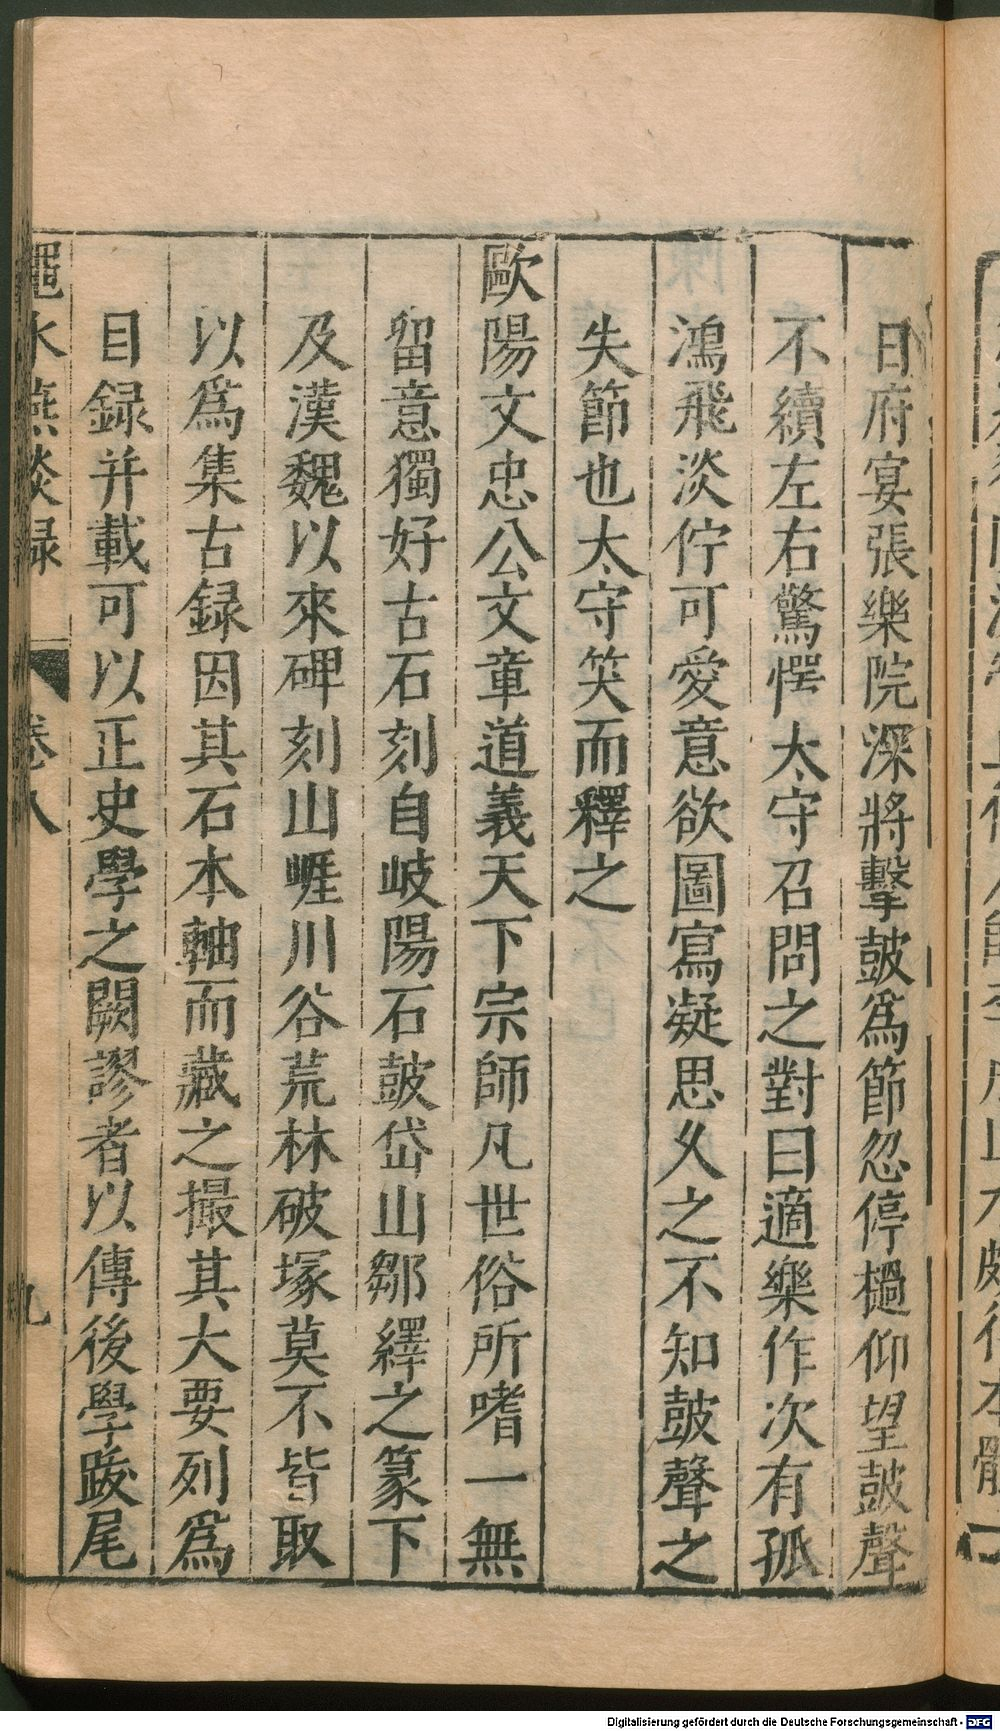 日府宴張樂院深將擊鼓為節忽停檛仰望鼓聲
不續左右驚愕太守召問之對曰適樂作次有孤
鴻飛淡佇可愛意欲圖寫凝思久之不知鼓聲之
失節也太守笑而釋之
歐陽文忠公文章道義天下宗師凡世俗所嗜一無
留意獨好古石刻自岐陽石鼓岱山鄒繹之篆下
及漢魏以來碑刻山崕川谷荒林破塚莫不皆取
以爲集古録因其石本軸而藏之撮其大要列爲
目録并載可以正史學之闕謬者以傳後學跋尾
澠水燕談録 卷八 九
Digitalisierung gefördert durch die Deutsche Forschungsgemeinschaft - DFG